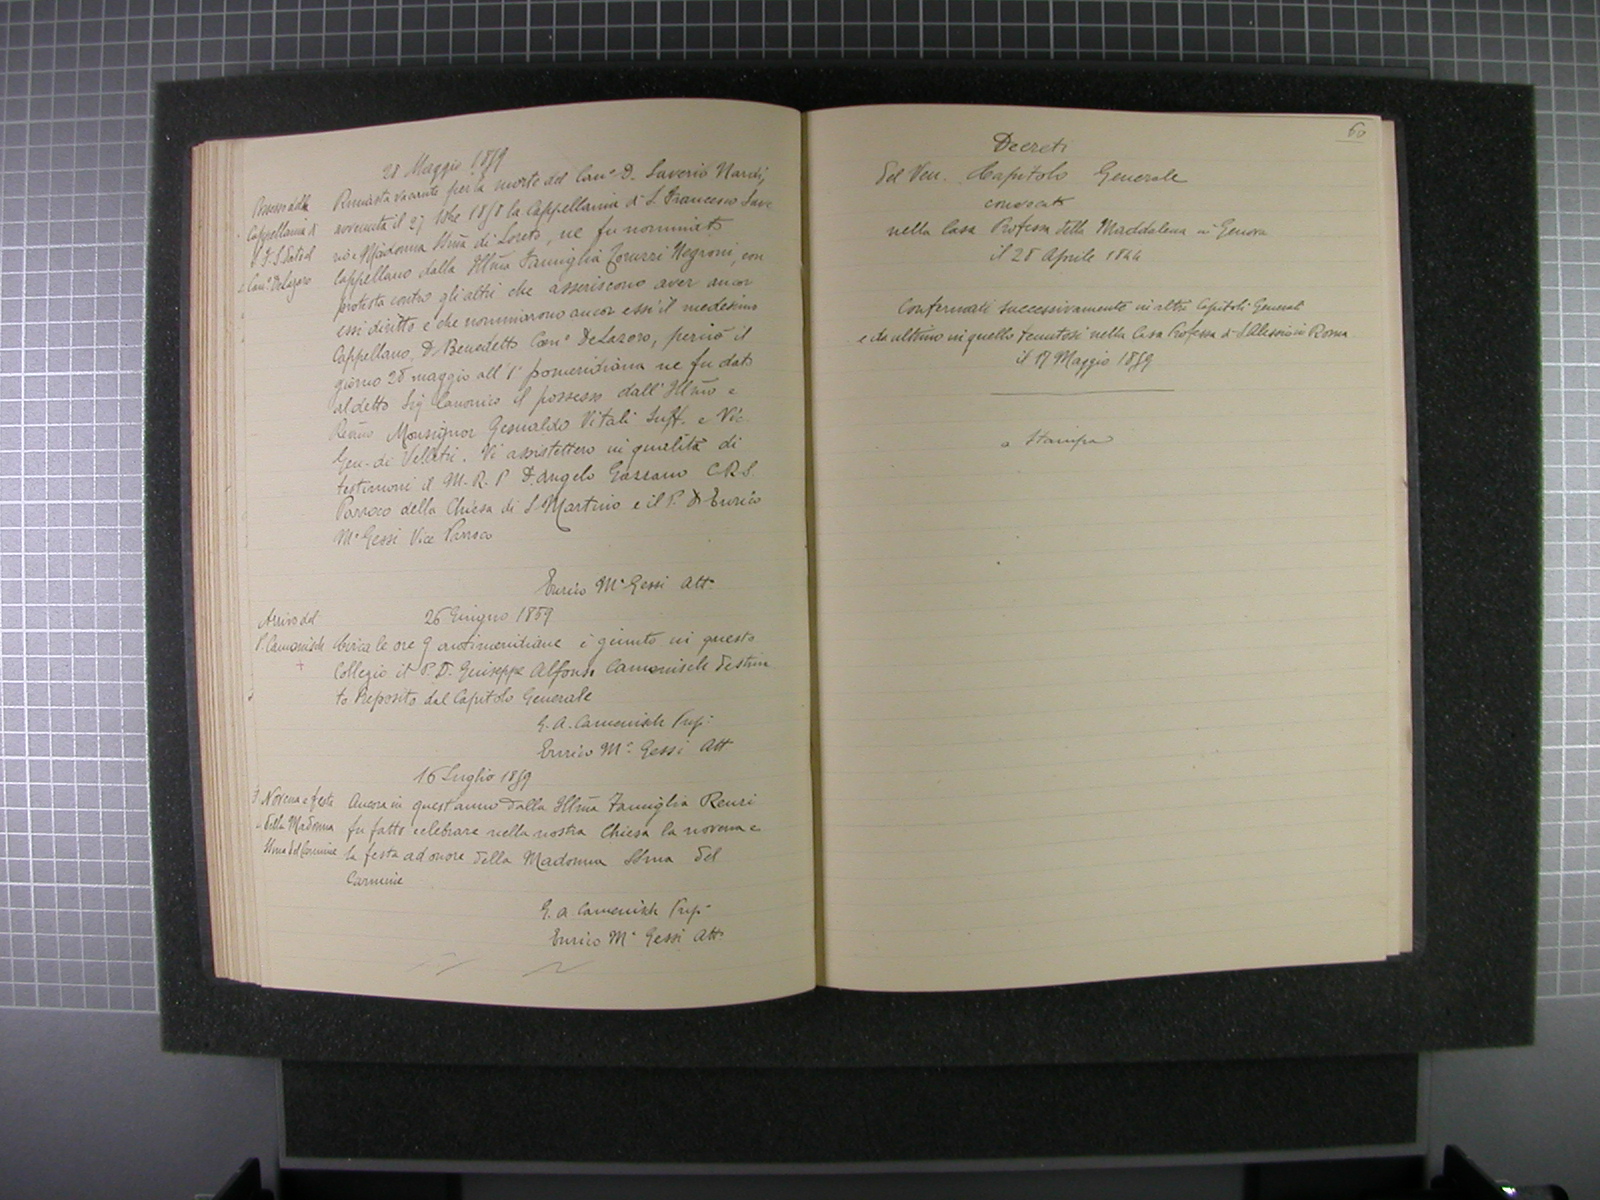 28 Maggio 1859
Possesso della
Cappellania di
S. F. S. dato al
Can.º De Lazaro
Rimasta vacante per la morte del Can.º D. Saverio Nardi,
avvenuta il 27 10bre 1858 la Cappellania di S. Francesco Save
rio e Madonna SSma di Loreto, ne fu nominato
Cappellano dalla Illma Famiglia Toruzzi Negroni, con
protesta contro gli altri che asseriscono aver ancor
essi diritto e che nominarono ancor essi il medesimo
Cappellano, D. Benedetto Can.º DeLazaro, perciò il
giorno 28 maggio all'1ª pomeridiana ne fu dato
al detto Sig. Canonico il possesso dall'Illmo e
Revmo Monsignor Gesualdo Vitali Suff. e Vic.
Gen. di Velletri. Vi assistettero in qualità di
testimoni il M. R. P. D. Angelo Gassano C.R.S.
Parroco della Chiesa di S. Martino e il P. D. Enrico
Mª Gessi Vice Parroco
Enrico Mª Gessi Att.
Arrivo del
P. Camenisch
+
26 Giugno 1859
Circa le ore 9 antimeridiane è giunto in questo
Collegio il P. D. Giuseppe Alfonso Camenisch destina
to Preposito dal Capitolo Generale
G. A. Camenisch Prep.
Enrico Mª Gessi Att.
16 Luglio 1859
Novena e festa
della Madonna
SSma del Carmine
Ancora in quest'anno dalla Illma Famiglia Renzi
fu fatto celebrare nella nostra Chiesa la novena e
la festa ad onore della Madonna SSma del
Carmine
G. A. Camenisch Prep.
Enrico Mª Gessi Att.
60
Decreti
del Ven. Capitolo Generale
convocato
nella Casa Professa della Maddalena in Genova
il 28 Aprile 1844
Confermati successivamente in altri Capitoli Generali
e da ultimo in quello tenutosi nella Casa Professa di S. Alessio in Roma
il 17 Maggio 1859
a Stampa